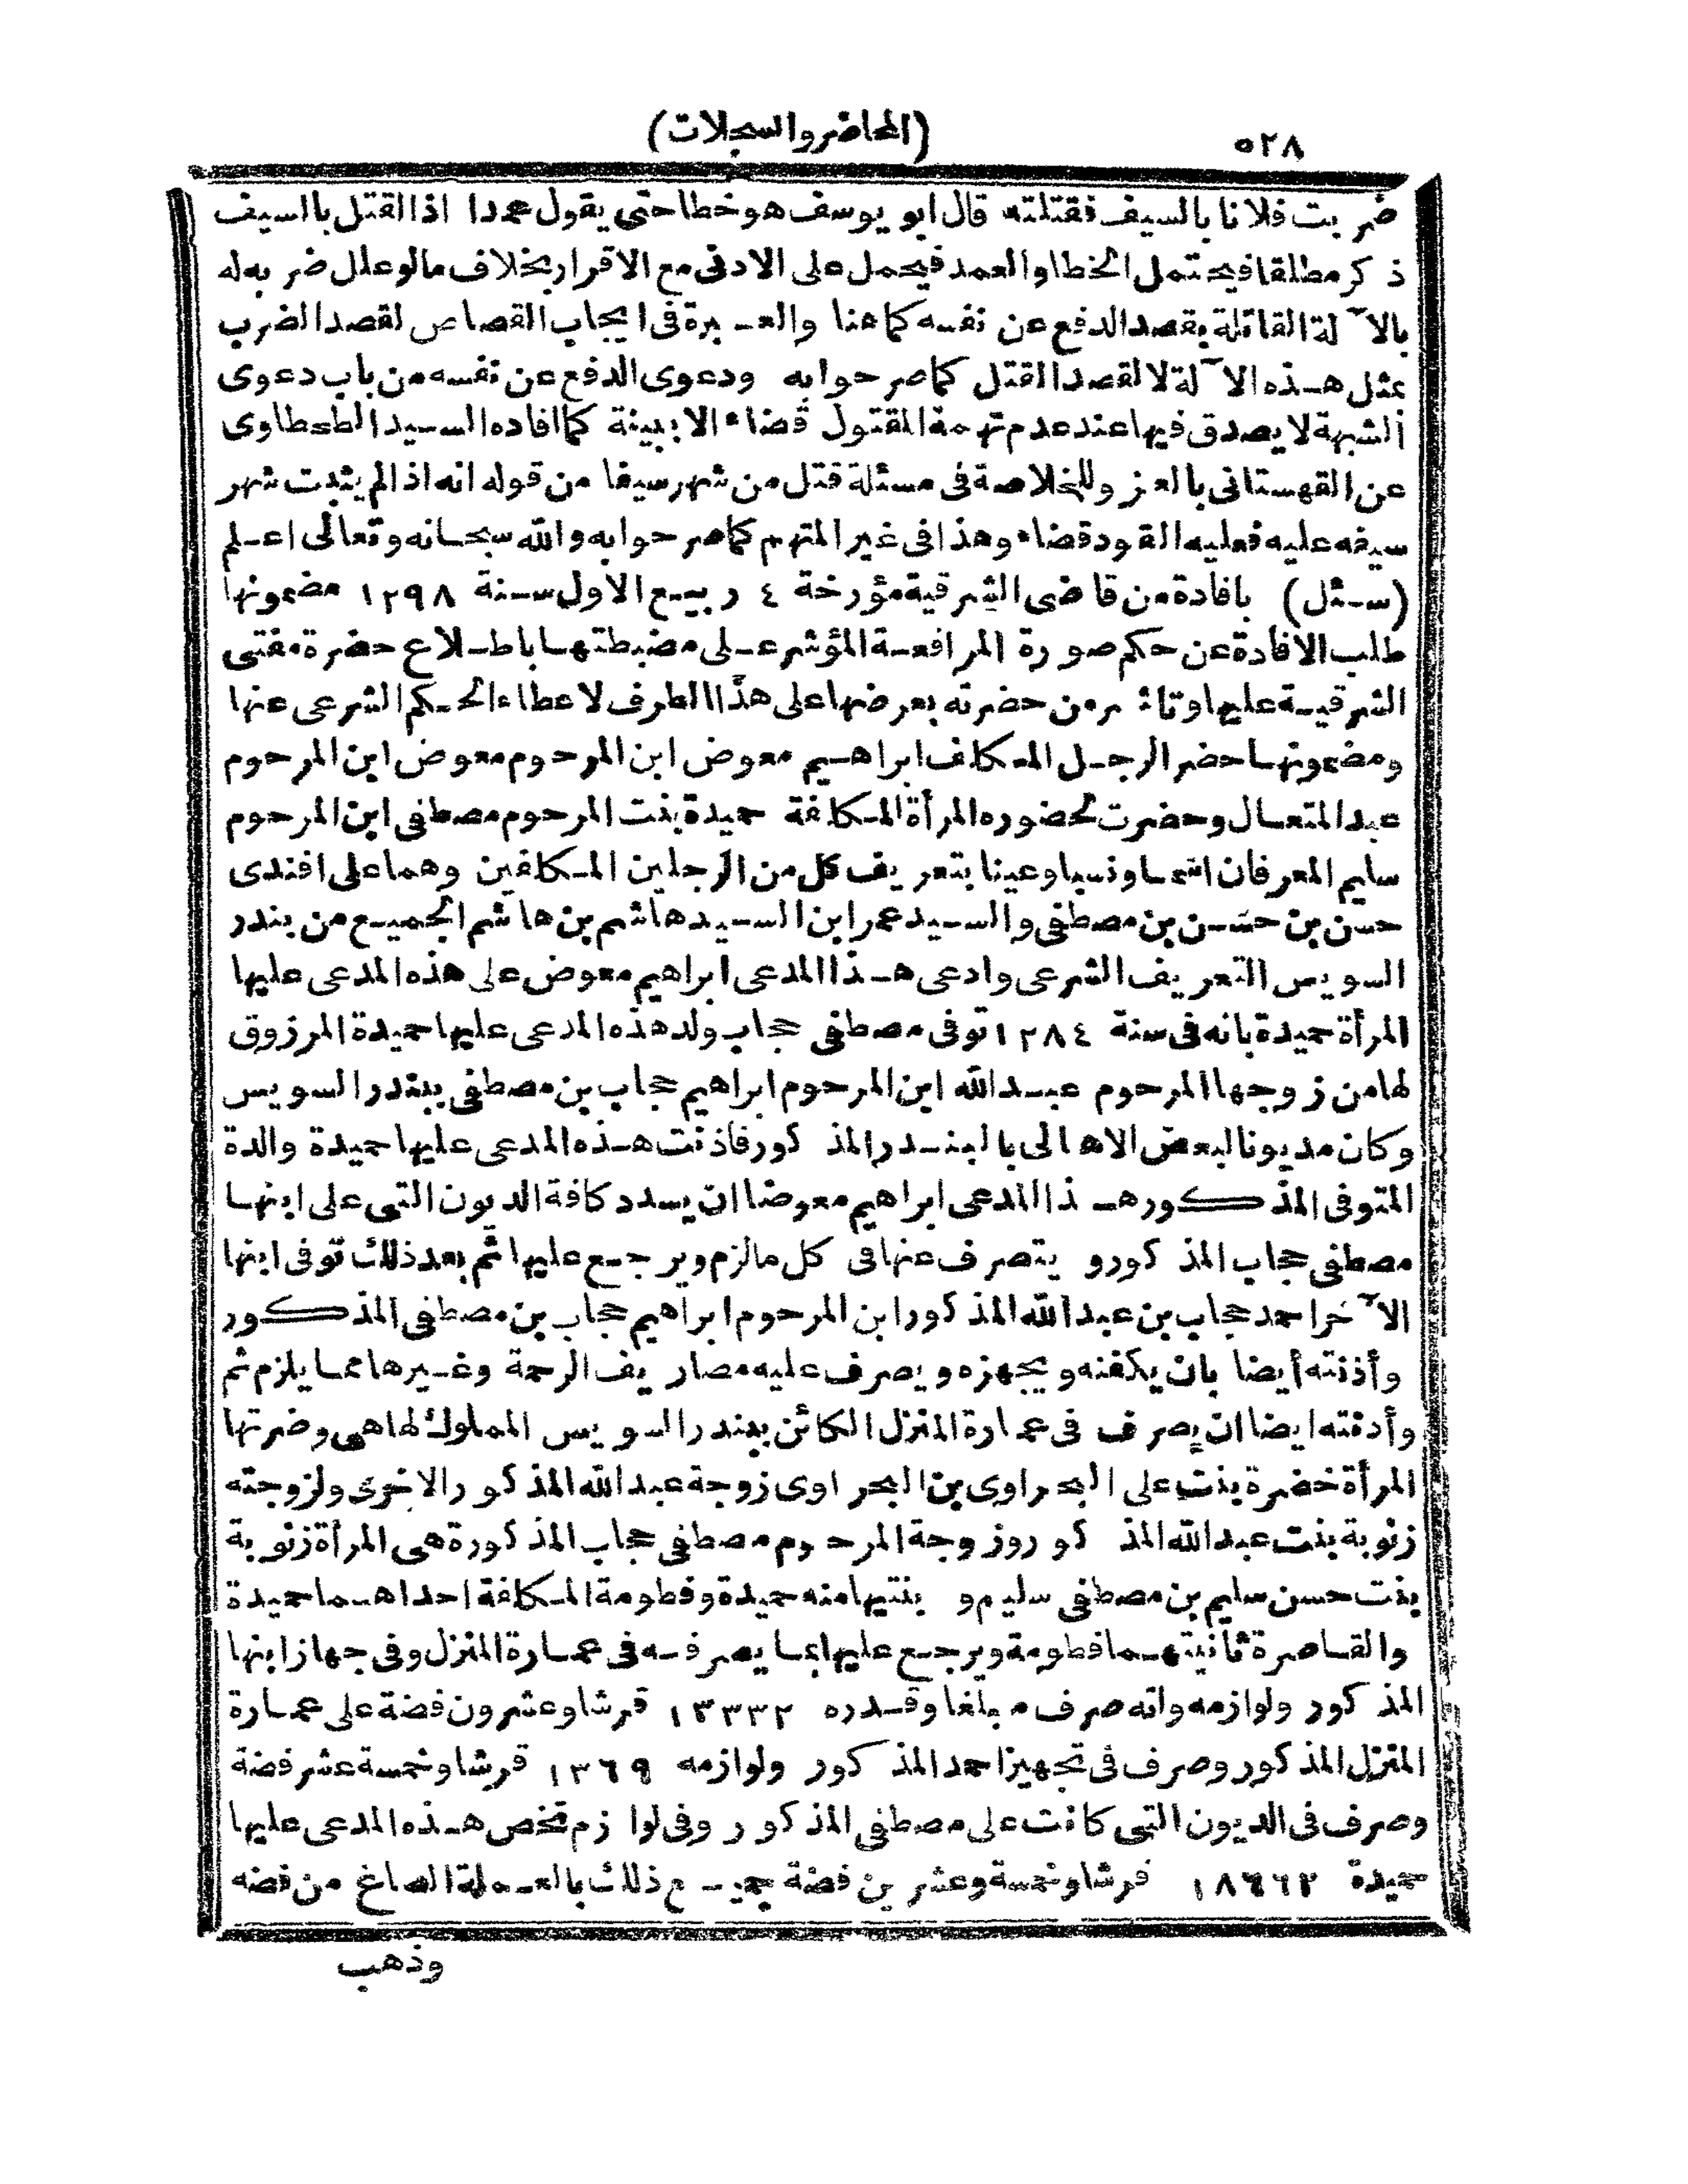 ٥٢٨
(المحاضر والسجلات)
ضربت فلانا بالسيف فقتلته قال ابو يوسف هو خطا حتى يقول عمدا اذا القتل بالسيف
ذكر مطلقا فيحتمل الخطا والعمد فيحمل على الادنى مع الاقرار بخلاف ما لو علل ضربه له
بالآلة القاتلة بقصد الدفع عن نفسه كما هنا والعبرة فى ايجاب القصاص لقصد الضرب
بمثل هذه الآلة لا لقصد القتل كما صرحوا به ودعوى الدفع عن نفسه من باب دعوى
الشبهة لا يصدق فيها عند عدم تهمة المقتول قضاء الا ببينة كما افاده السيد الطحطاوى
عن القهستانى بالعز وللخلاصة فى مسئلة قتل من شهر سيفا من قوله انه اذا لم يثبت شهر
سيفه عليه فعليه القود قضاء وهذا فى غير المتهم كما صرحوا به والله سبحانه وتعالى اعلم
(سئل) بافادة من قاضى الشرقية مؤرخة ٤ ربيع الاول سنة ١٢٩٨ مضمونها
طلب الافادة عن حكم صورة المرافعة المؤشر على مضبطتها باطلاع حضرة مفتى
الشرقية عليها وتاشر من حضرته بعرضها على هذا الطرف لاعطاء الحكم الشرعى عنها
ومضمونها حضر الرجل المكلف ابراهيم معوض ابن المرحوم معوض ابن المرحوم
عبد المتعال وحضرت لحضوره المرأة المكلفة حميدة بنت المرحوم مصطفى ابن المرحوم
سليم المعرفان اسما ونسبا وعينا بتعريف كل من الرجلين المكلفين وهما على افندى
حسن بن حسن بن مصطفى والسيد عمر ابن السيد هاشم بن هاشم الجميع من بندر
السويس التعريف الشرعى وادعى هذا المدعى ابراهيم معوض على هذه المدعى عليها
المرأة حميدة بانه فى سنة ١٢٨٤ توفى مصطفى حجاب ولد هذه المدعى عليها حميدة المرزوق
لها من زوجها المرحوم عبد الله ابن المرحوم ابراهيم حجاب بن مصطفى ببندر السويس
وكان مديونا لبعض الاهالى بالبندر المذكور فاذنت هذه المدعى عليها حميدة والدة
المتوفى المذكور هذا المدعى ابراهيم معوضا ان يسدد كافة الديون التى على ابنها
مصطفى حجاب المذكور و يتصرف عنها فى كل ما لزم ويرجع عليها ثم بعد ذلك توفى ابنها
الآخر احمد حجاب بن عبد الله المذكور ابن المرحوم ابراهيم حجاب بن مصطفى المذكور
وأذنته أيضا بان يكفنه ويجهزه ويصرف عليه مصاريف الرحمة وغيرها مما يلزم ثم
وأذنته ايضا ان يصرف فى عمارة المنزل الكائن ببندر السويس المملوك لها هى وضرتها
المرأة خضرة بنت على البحراوى بن البحراوى زوجة عبد الله المذكور الاخرى ولزوجته
زنوبة بنت عبد الله المذكور وزوجة المرحوم مصطفى حجاب المذكورة هى المرأة زنوبة
بنت حسن سليم بن مصطفى سليم و بنتيها منه حميدة وفطومة المكلفة احداهما حميدة
والقاصرة ثانيتهما فطومة ويرجع عليها بما يصرفه فى عمارة المنزل وفى جهاز ابنها
المذكور ولوازمه وانه صرف مبلغا وقدره ١٣٣٣٢ قرشا وعشرون فضة على عمارة
المنزل المذكور وصرف فى تجهيز احمد المذكور ولوازمه ١٣٦٩ قرشا وخمسة عشر فضة
وصرف فى الديون التى كانت على مصطفى المذكور وفى لوازم تخص هذه المدعى عليها
حميدة ١٨٦٦٢ قرشا وخمسة وعشرين فضة جميع ذلك بالعملة الصاغ من فضه
وذهب